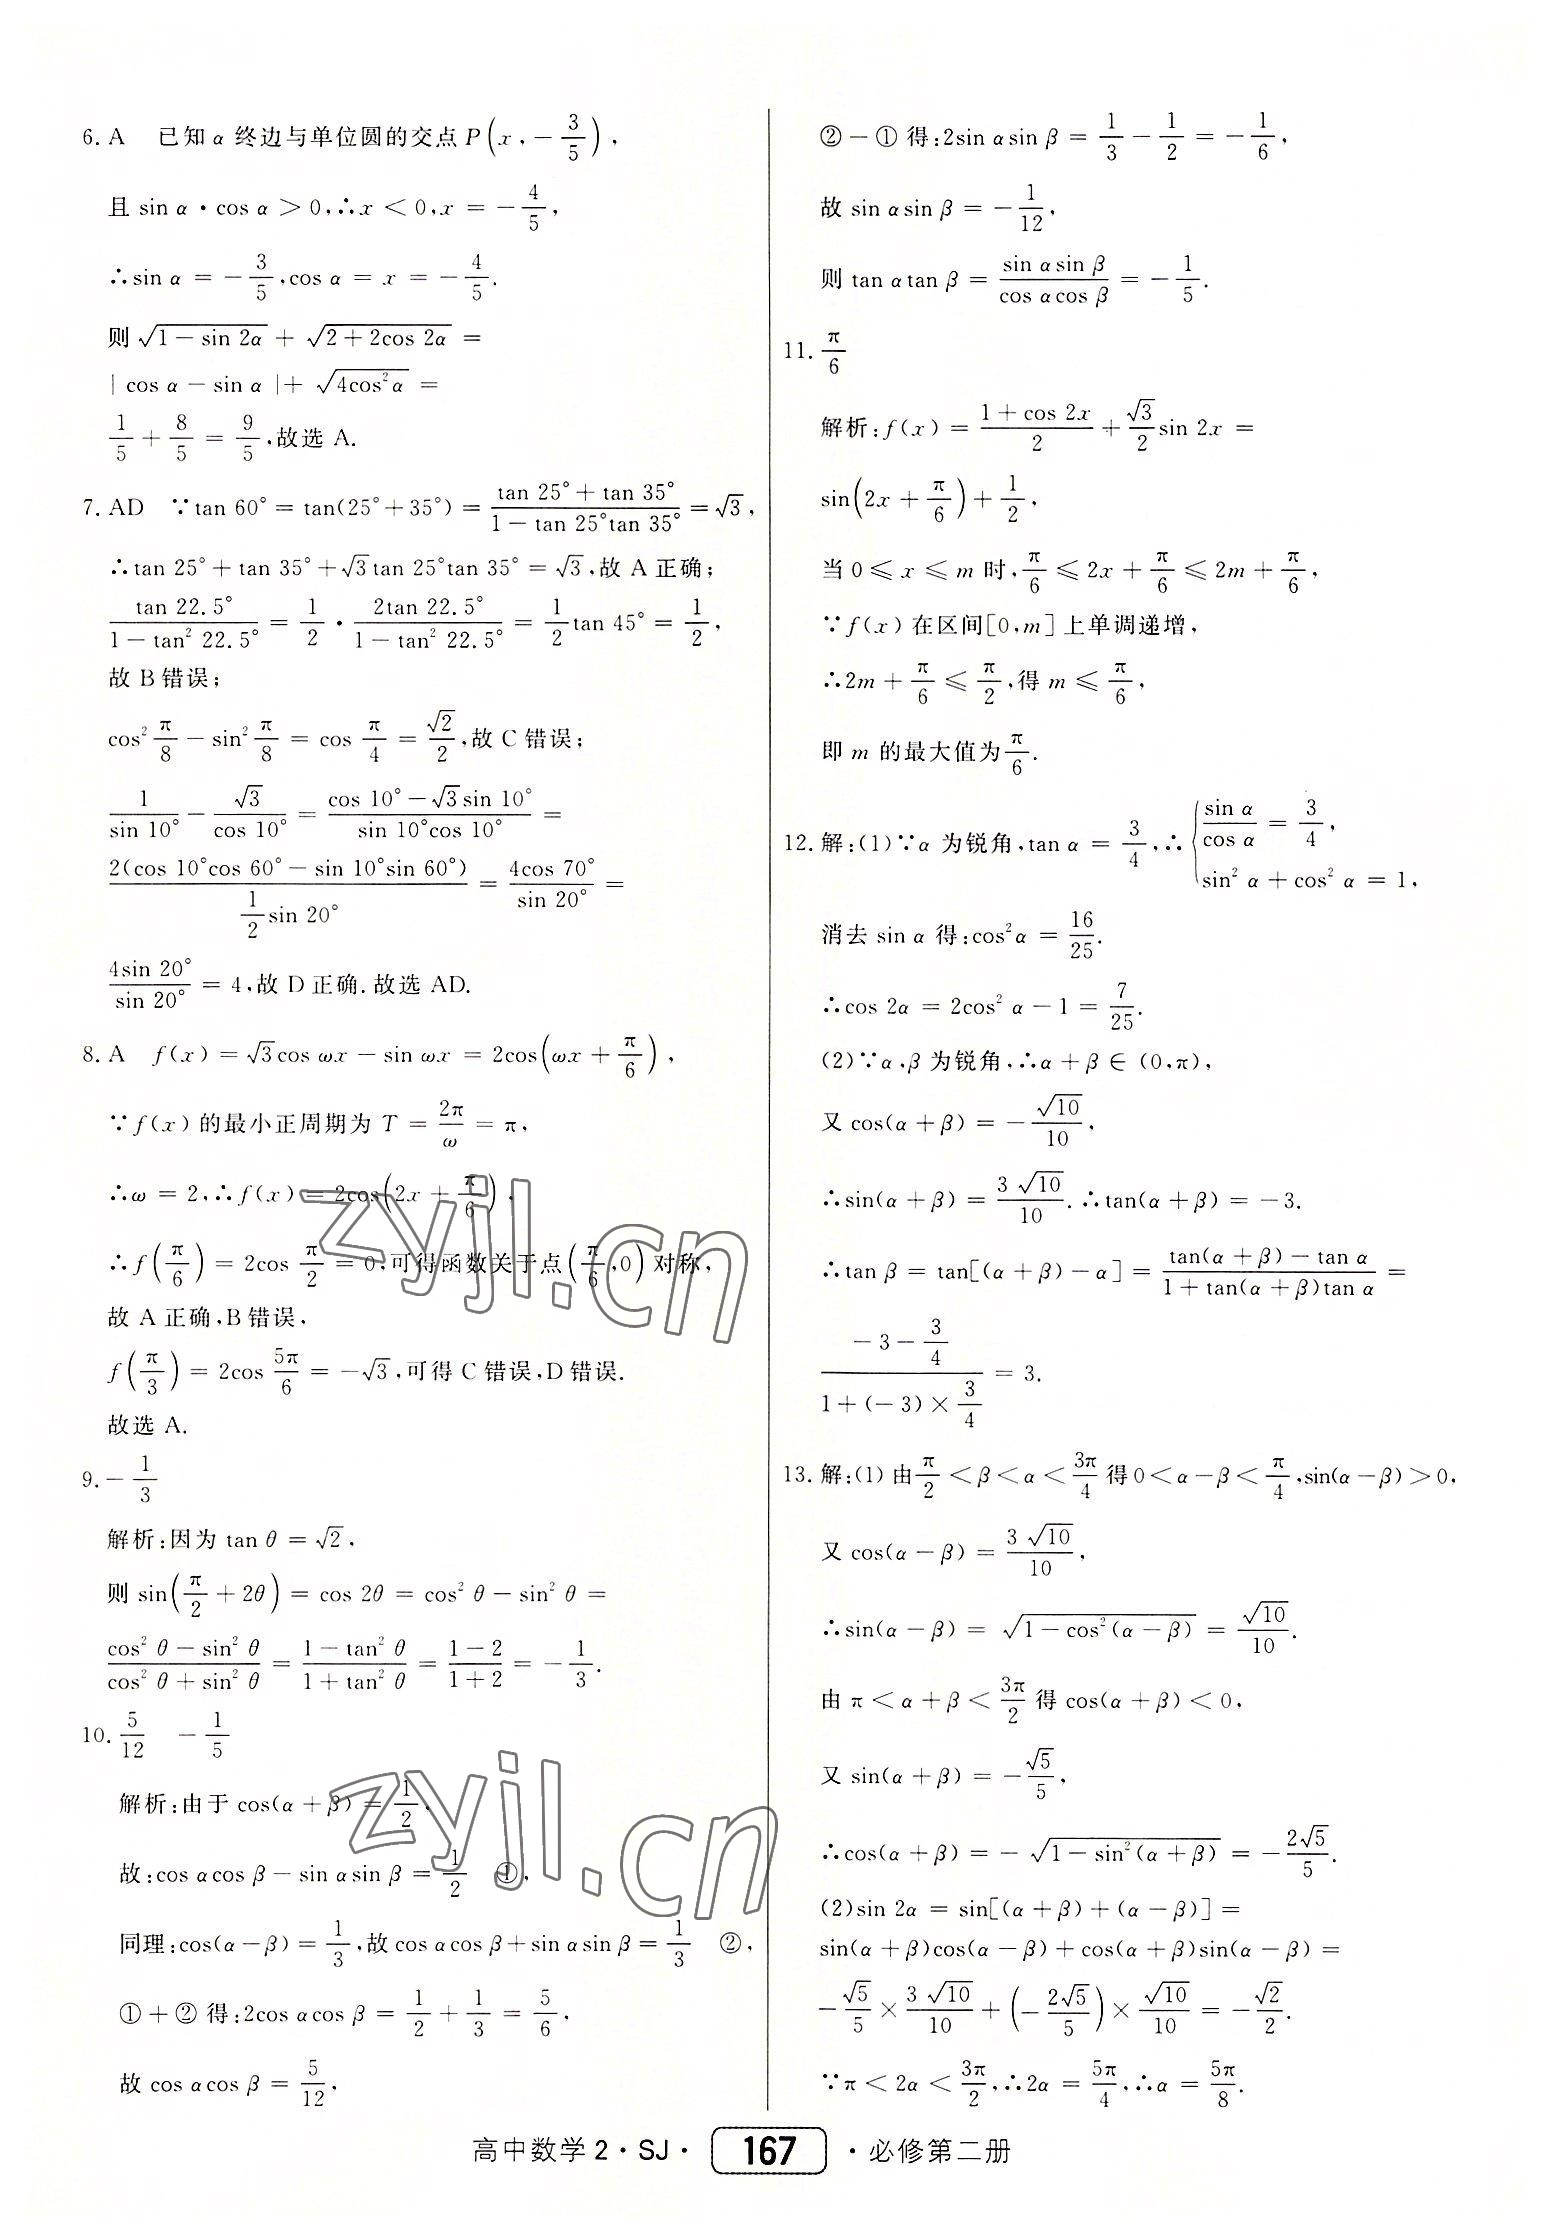 6. A 已知 α 终边与单位圆的交点 P(x, -3/5),
且 sin α·cos α > 0,∴x < 0,x = -4/5,
∴sin α = -3/5,cos α = x = -4/5.
则 √(1-sin 2α) + √(2+2cos 2α) =
|cos α - sin α|+ √(4cos²α) =
1/5 + 8/5 = 9/5,故选 A.
7. AD ∵tan 60° = tan(25°+35°) = (tan 25°+tan 35°)/(1-tan 25°tan 35°) = √3,
∴tan 25°+tan 35°+√3tan 25°tan 35° = √3,故 A 正确;
tan 22.5°/(1-tan² 22.5°) = 1/2 · 2tan 22.5°/(1-tan² 22.5°) = 1/2 tan 45° = 1/2,
故 B 错误;
cos² π/8 - sin² π/8 = cos π/4 = √2/2,故 C 错误;
1/sin 10° - √3/cos 10° = (cos 10°-√3sin 10°)/(sin 10°cos 10°) =
2(cos 10°cos 60°-sin 10°sin 60°)/(1/2 sin 20°) = 4cos 70°/sin 20° =
4sin 20°/sin 20° = 4,故 D 正确.故选 AD.
8. A f(x) = √3cos ωx - sin ωx = 2cos(ωx + π/6),
∵f(x) 的最小正周期为 T = 2π/ω = π,
∴ω = 2,∴f(x) = 2cos(2x + π/6),
∴f(π/6) = 2cos π/2 = 0,可得函数关于点(π/6,0)对称,
故 A 正确,B 错误,
f(π/3) = 2cos 5π/6 = -√3,可得 C 错误,D 错误.
故选 A.
9. -1/3
解析:因为 tan θ = √2,
则 sin(π/2 + 2θ) = cos 2θ = cos² θ - sin² θ =
(cos² θ - sin² θ)/(cos² θ + sin² θ) = (1-tan² θ)/(1+tan² θ) = (1-2)/(1+2) = -1/3.
10. 5/12 -1/5
解析:由于 cos(α+β) = 1/2,
故:cos αcos β - sin αsin β = 1/2 ①,
同理:cos(α-β) = 1/3,故 cos αcos β+sin αsin β = 1/3 ②,
①+② 得:2cos αcos β = 1/2 + 1/3 = 5/6,
故 cos αcos β = 5/12,
②-① 得:2sin αsin β = 1/3 - 1/2 = -1/6,
故 sin αsin β = -1/12,
则 tan αtan β = sin αsin β/cos αcos β = -1/5.
11. π/6
解析:f(x) = (1+cos 2x)/2 + √3/2 sin 2x =
sin(2x + π/6) + 1/2,
当 0 ⩽ x ⩽ m 时,π/6 ⩽ 2x + π/6 ⩽ 2m + π/6,
∵f(x) 在区间[0,m] 上单调递增,
∴2m + π/6 ⩽ π/2,得 m ⩽ π/6,
即 m 的最大值为 π/6.
12. 解:(1)∵α 为锐角,tan α = 3/4,∴{sin α/cos α = 3/4,
sin² α + cos² α = 1,
消去 sin α 得:cos²α = 16/25.
∴cos 2α = 2cos² α - 1 = 7/25.
(2)∵α,β 为锐角,∴α + β ∈ (0,π),
又 cos(α + β) = -√10/10,
∴sin(α + β) = 3√10/10. ∴tan(α + β) = -3.
∴tan β = tan[(α + β) - α] = (tan(α + β) - tan α)/(1 + tan(α + β)tan α) =
(-3 - 3/4)/(1 + (-3) × 3/4) = 3.
13. 解:(1) 由 π/2 < β < α < 3π/4 得 0 < α-β < π/4,sin(α-β) > 0,
又 cos(α - β) = 3√10/10,
∴sin(α - β) = √(1-cos²(α-β)) = √10/10.
由 π < α + β < 3π/2 得 cos(α + β) < 0,
又 sin(α + β) = -√5/5,
∴cos(α + β) = -√(1-sin²(α+β)) = -2√5/5.
(2)sin 2α = sin[(α + β) + (α - β)] =
sin(α + β)cos(α - β) + cos(α + β)sin(α - β) =
-√5/5 × 3√10/10 + (-2√5/5) × √10/10 = -√2/2.
∵π < 2α < 3π/2,∴2α = 5π/4,∴α = 5π/8.
高中数学2·SJ· 167 ·必修第二册
zyjl.cn
zyjl.cn